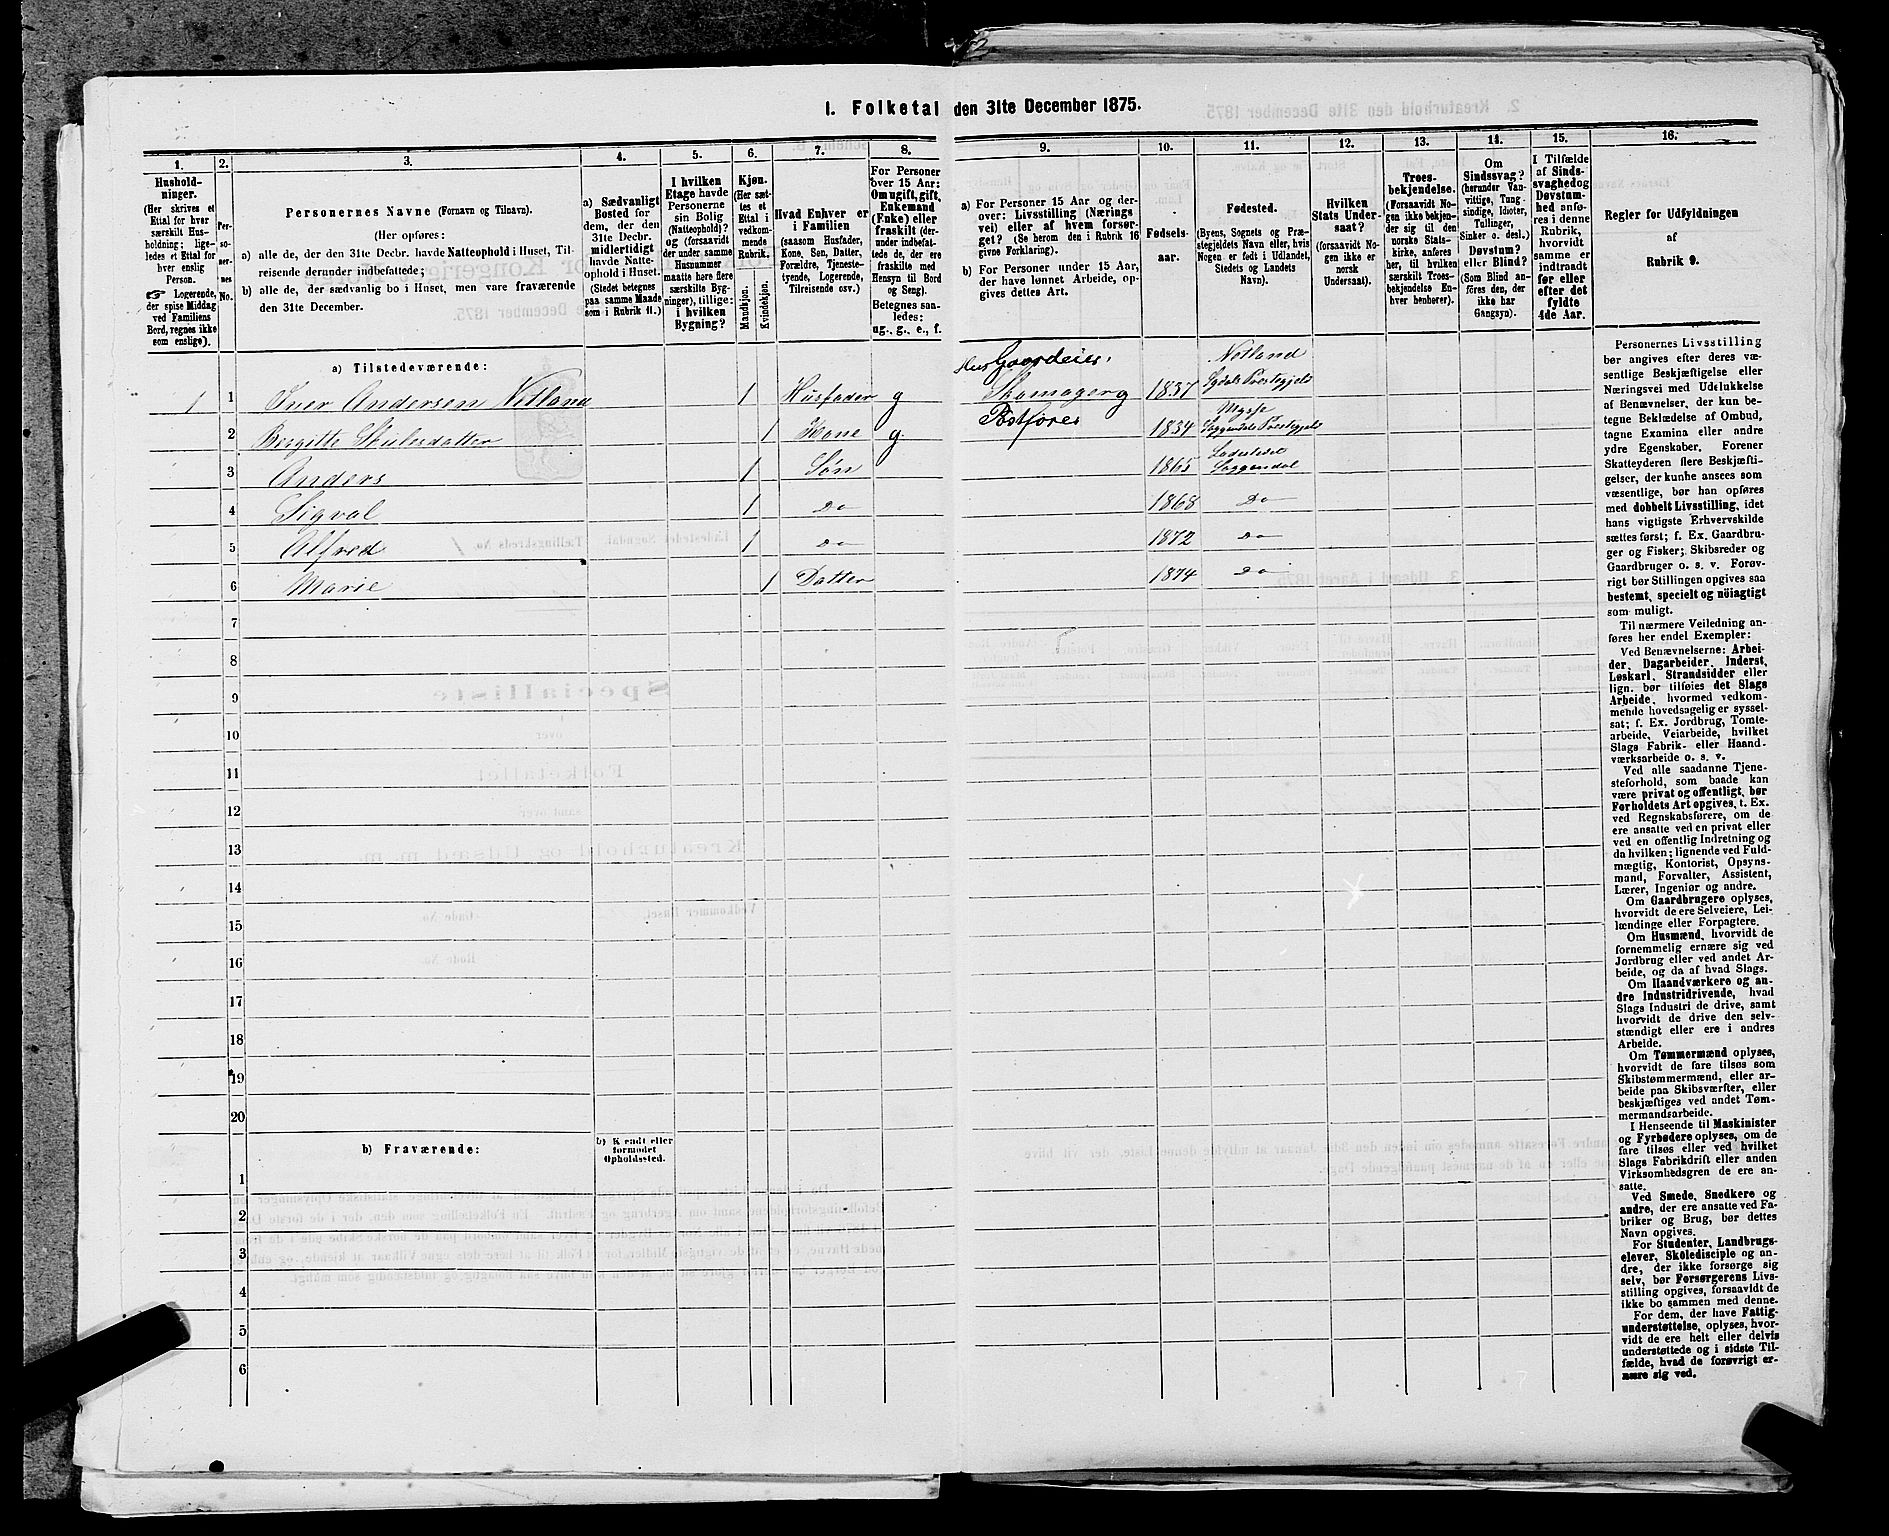 1. Folketal den 31te December 1875.
1.
Hushold-
ninger.
(Her skrives et
Ettal for hver
særskilt Hus-
holdning; lige-
ledes et Ettal for
hver enslig
Person.
☞ Logerende,
der spise Middag
ved Familiens
Bord, regnes ikke
som enslige).
2.
Per-
so-
ner-
nes
No.
3.
Personernes Navne (Fornavn og Tilnavn).
(Her opføres:
a) alle de, der den 31te Decbr. havde Natteophold i Huset, Til-
reisende derunder indbefattede;
b) alle de, der sædvanlig bo i Huset, men vare fraværende
den 31te December.
4.
a) Sædvanligt
Bosted for
dem, der den
31te Decbr.
midlertidigt
havde Natte-
ophold i Huset.
(Stedet betegnes
paa samme Maade
som i Rubrik 11.)
5.
I hvilken
Etage havde
Personerne
sin Bolig
(Natteophold)?
og (forsaavidt
der under samme
Husnummer
maatte høre flere
særskilte Byg-
ninger), tillige:
i hvilken
Bygning?
6.
Kjøn.
(Her sæt-
tes et
Ettal i
vedkom-
mende
Rubrik.
Mandkjøn.
Kvindekjøn.
7.
Hvad Enhver er
i Familien
(saasom Husfader,
Kone, Søn, Datter,
Forældre, Tjeneste-
tyende, Logerende,
Tilreisende osv.)
8.
For Personer
over 15 Aar:
Om ugift, gift,
Enkemand
(Enke) eller
fraskilt (der-
under indbefat-
tede de, der ere
fraskilte med
Hensyn til Bord
og Seng).
Betegnes saa-
ledes:
ug., g., e., f.
9.
a) For Personer 15 Aar og der-
over: Livsstilling (Nærings
vei) eller af hvem forsør-
get? (Se herom den i Rubrik 16
givne Forklaring).
b) For Personer under 15 Aar,
der have lønnet Arbeide, op-
gives dettes Art.
10.
Fødsels-
aar.
11.
Fødested.
(Byens, Sognets og Præ-
stegjeldets Navn eller, hvis
Nogen er født i Udlandet,
Stedets og Landets
Navn).
12.
Hvilken
Stats Under-
saat?
(forsaavidt No-
gen ikke er
norsk
Undersaat).
13.
Troes-
bekjendelse.
(Forsaavidt No-
gen ikke bekjen-
der sig til den
norske Stats-
kirke, anføres
her, til hvilken
særskilt Troes-
bekjendelse En-
hver henhører).
14.
Om
Sindssvag?
(herunder Van-
vittige, Tung-
sindige, Idioter,
Tullinger,
Sinker o. desl.)
Døvstum?
eller Blind?
(Som Blind an-
føres den, der
ikke har
Gangsyn).
15.
I Tilfælde
af Sinds-
svaghed og
Døvstum-
hed anfø-
res i denne
Rubrik,
hvorvidt
samme er
indtraadt
før eller
efter det
fyldte
4de Aar.
16.
Regler for Udfyldningen
af
Rubrik 9.
a) Tilstedeværende:
Gaardeier. Netland
1 1 Iver Andersen Netland 1 Husfader g Skomager g 1837
2 Bergitte 1 Kone g. 1834
3 Anders 1 Søn 1865 Soggendal
4 Sigval 1 Do 1868 Do
5 Alfred 1 Do 1872 Do
6 Marie 1 Datter 1874 Do
7
8
9
10
11
12
13
14
15
16
17
18
19
20
b) Fraværende:
b) Kjendt eller
formodet
Opholdssted.
1
2
3
4
5
6
Personernes Livsstilling
bør angives efter deres væ-
sentlige Beskjæftigelse eller
Næringsvei med Udelukkelse
af Benævnelser, der kun be-
tegne Beklædelse af Ombud,
tagne Examina eller andre
ydre Egenskaber. Forener
Skatteyderen flere Beskjæfti-
gelser, der kunne ansees som
væsentlige, bør han opføres
med dobbelt Livsstilling, idet
hans vigtigste Erhvervskilde
sættes først; f. Ex. Gaardbru-
ger og Fisker; Skibsreder og
Gaardbruger o. s. v. Forøv-
rigt bør Stillingen opgives saa
bestemt, specielt og nöiagtigt
som muligt.
Til nærmere Veiledning an-
føres her endel Exempler:
Ved Benævnelserne: Arbei-
der, Dagarbeider, Inderst,
Løskarl, Strandsidder eller
lign. bør tilføies det Slags
Arbeide, hvormed vedkom-
mende hovedsagelig er syssel-
sat; f. Ex. Jordbrug, Tomte-
arbeide, Veiarbeide, hvilket
Slags Fabrik- eller Haand-
værksarbeide o. s. v.
Ved alle saadanne Tjene-
steforhold, som baade kan
være privat og offentligt, bør
Forholdets Art opgives, t. Ex.
ved Regnskabsførere, om de
ere ansatte ved en privat eller
ved en offentlig Indretning og
da hvilken; lignende ved Fuld-
mægtig, Kontorist, Opsyns-
mand, Forvalter, Assistent,
Lærer, Ingeniør og andre.
Om Gaardbrugere oplyses,
hvorvidt de ere Selveiere, Lei-
lændinge eller Forpagtere.
Om Husmænd, hvorvidt de
fornemmelig ernære sig ved
Jordbrug eller ved andet Ar-
beide, og da af hvad Slags.
Om Haandværkere og an-
dre Industridrivende, hvad
Slags Industri de drive, samt
hvorvidt de drive den selv-
stændigt eller ere i andres
Arbeide.
Om Tømmermænd oplyses,
hvorvidt de fare tilsøs som
Skibstømmermænd, eller ar-
beide paa Skibsværfter, eller
beskjæftiges ved andet Tøm-
mermandsarbeide.
I Henseende til Maskinister
og Fyrbødere oplyses, om de
fare tilsøs eller ved hvilket
Slags Fabrikdrift eller anden
Virksomhedsgren de ere an-
satte.
Ved Smede, Snedkere og
andre, der ere ansatte ved Fa-
briker og Brug, bør dettes
Navn opgives.
For Studenter, Landbrugs-
elever, Skoledisciple og an-
dre, der ikke forsørge sig
selv, bør Forsørgerens Livs-
stilling opgives, forsaavidt de
ikke bo sammen med denne.
For dem, der have Fattig-
understøttelse, oplyses, hvor-
vidt de ere helt eller delvis
understøttede og i sidste Til-
fælde, hvad de forøvrigt er-
nære sig ved.